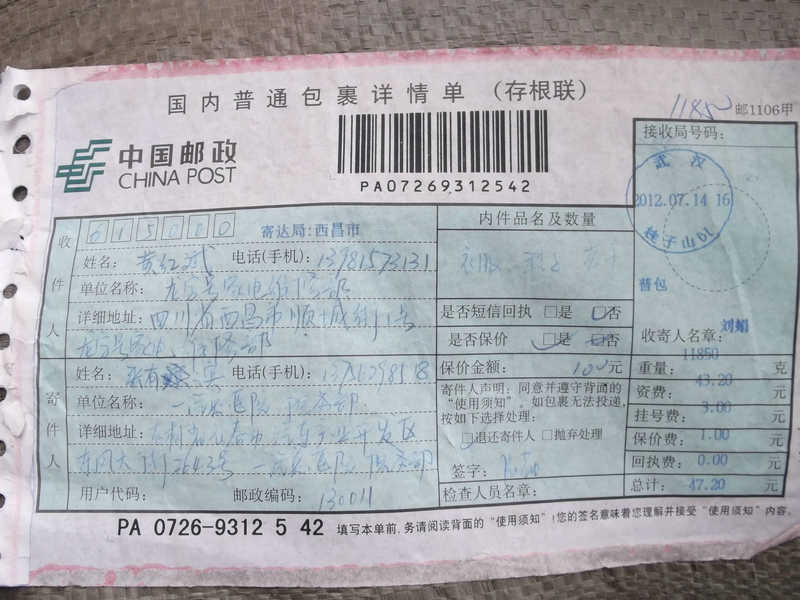 国内普通包裹详情单 (存根联)
1185 邮1106甲
中国邮政
CHINA POST
PA07269312542
接收局号码:
武汉
2012.07.14 16
桂子山
收件人
615000
寄达局:西昌市
内件品名及数量
姓名: 黄红武 电话(手机):
衣服
普包
单位名称: 家电维修部
详细地址: 四川省西昌市顺城街11号
是否短信回执 □是 □否
是否保价 □是 □否
收寄人名章: 刘娟
寄件人
姓名: 电话(手机):
保价金额: 100元
重量: 11850 克
单位名称: 一汽总医院
寄件人声明:同意并遵守背面的
“使用须知”。如包裹无法投递,
按如下选择处理:
□退还寄件人 □抛弃处理
资费: 43.20 元
挂号费: 3.00 元
详细地址: 吉林省长春市汽车产业开发区
东风大街2643号 一汽总医院
保价费: 1.00 元
签字:
回执费: 0.00 元
用户代码: 邮政编码: 130011
检查人员名章:
总计: 47.20 元
PA 0726-9312 5 42 填写本单前,务请阅读背面的“使用须知”!您的签名意味着您理解并接受“使用须知”内容。